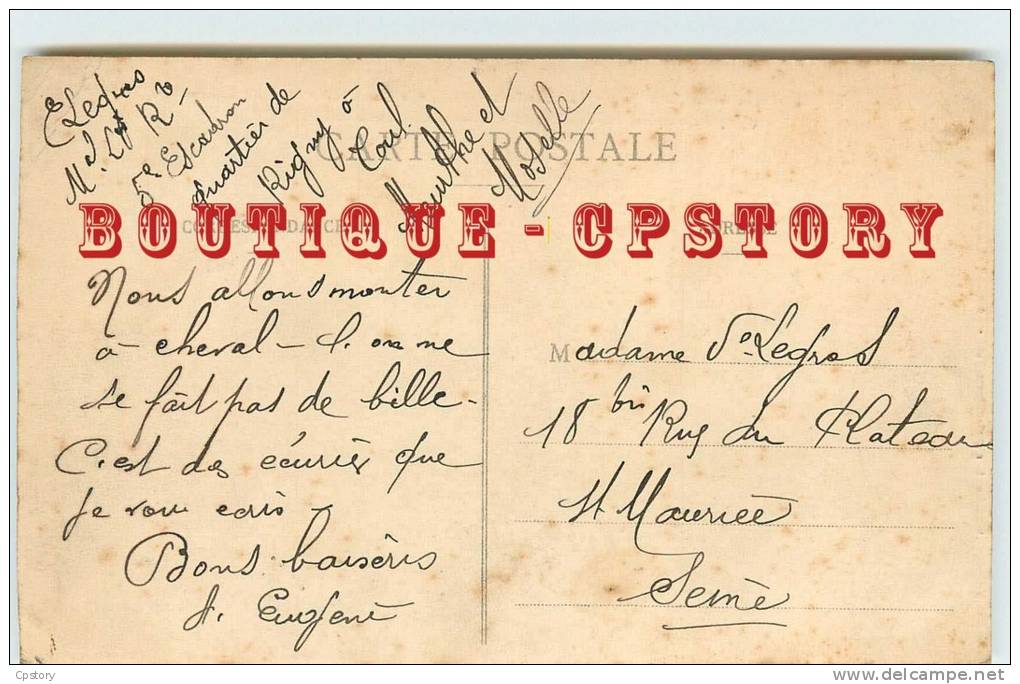 E Legros
Mal. Lgt Rv
5e Escadron
quartier de
Rigny à
Toul.
Meurthe et
Moselle
CARTE POSTALE
BOUTIQUE - CPSTORY
Nous allons monter
à cheval - l'on ne
se fait pas de bille.
C'est des écuries que
je vous écris -
Bons baisers
Eugène
Madame Vve Legros
18 bis Rue du Plateau
St Maurice
Seine
Cpstory
www.delcampe.net